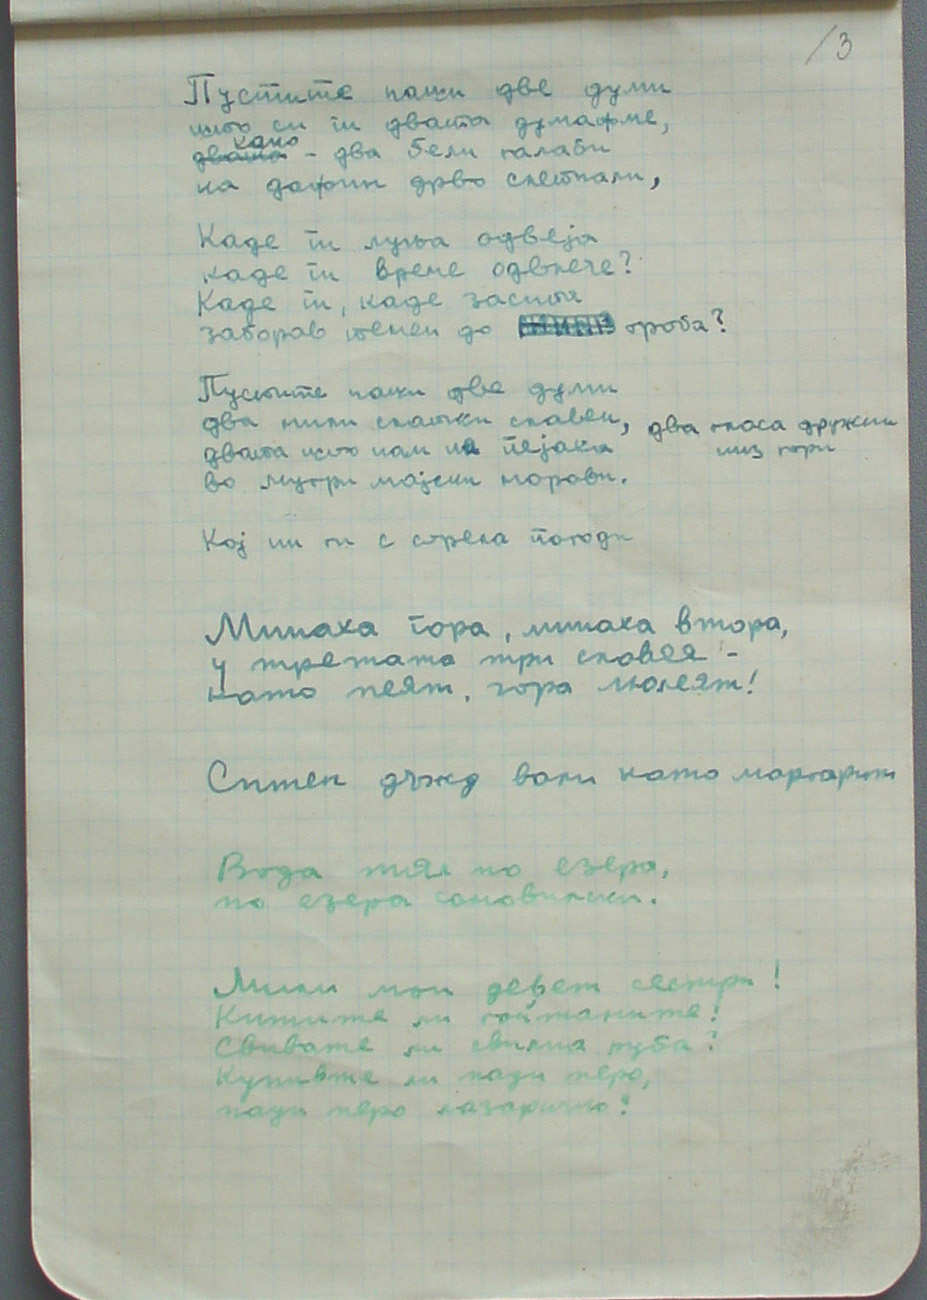 /3
Пустите пакли две думи
што си ги двата думафме,
како
двата - два бели галаби
на дафин дрво слетнали,
Каде ги луња одвеја
каде ги време одвлече?
Каде ги, каде заспия
заборав темен до гроба?
Пустите пакли две думи
два мили слатки славеи, два гласа дружни
двата што нам не пејака низ гори
во мугри мајски зорови.
Кој ни ги с стрела погоди
Минаха гора, минаха втора,
у третата три славея -
като пеят, гора люлеят!
Ситен дъжд вали като маргарит
Вода тял по езера,
по езера самовилски.
Мили мои девет сестри!
Китите ли гойтаните?
Свивате ли свилна руба?
Купивте ли пауи перо,
пауи перо лазарично?